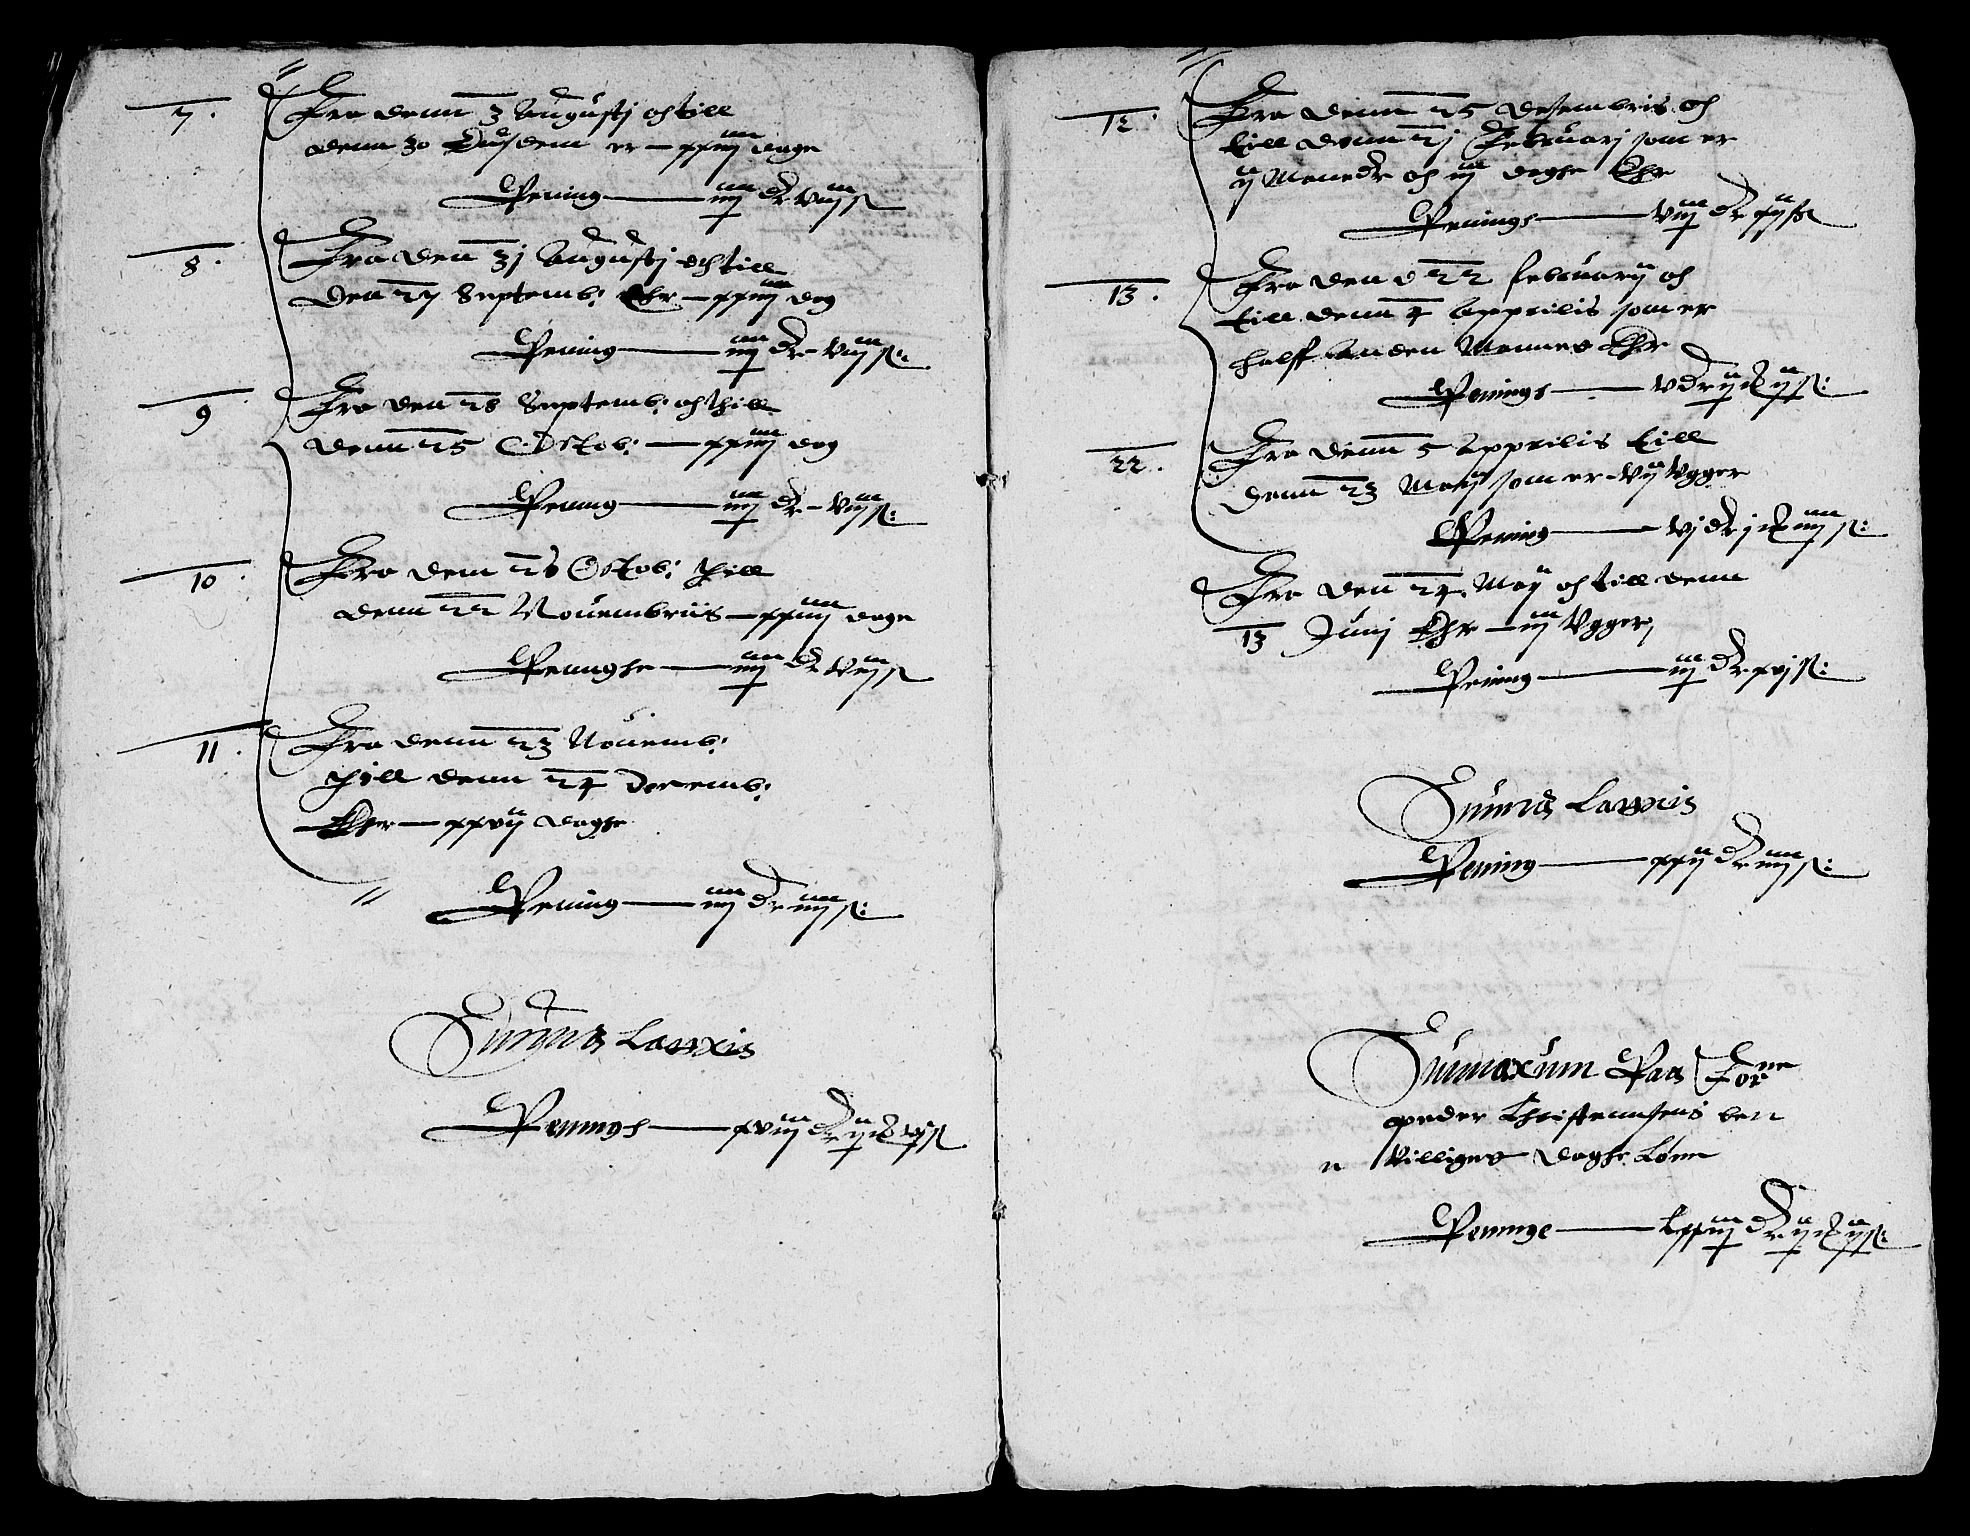 7. Fra denn 3 Augustj och till
denn 30 Eiusdem er — xxviij dage
Pening — iiij dr viij ß
8. Fra den 31 Augustj och till
Den 27 Septemb: Ehr — xxviij dag
Pening — iiij dr viij ß:
9. Fra den 28 Septemb: och thill
denn 25 Octob: — xxviij dag
Pening — iiij dr – viij ß:
10. Fra dem 26 Octob: thill
denn 22 Nouembriis — xxviij dage
Peninghe — iiij dr viij ß
11. Fra denn 23 Nouemb:
thill denn 24 Decemb:
Eher — xxvij daghe
Pening — iiij dr iiij ß:
Summa Lateris
Peningh — xviij dr ij ß
12. Fra denn 25 Desembris och
till denn 21 Februarj som er
ij Maneder och iij daghe Ehr
Penings — viij dr xij ß
13. Fra den 22 februarij och
till denn 4 Apprilis som er
halff Anden Mannes Ehr
Penings — v dr ij ij ß:
22. Fra denn 5 Apprilis till
denn 23 Maij som er vij Vgger
Pening — vj dr j iiij ß:
Fra den 24 Maij och till denn
13 Junj Ehr — iij Vgger
Pening — iij dr xvj ß:
Summa Lateris
Pening — xxij dr iiij ß:
Summarum Paa For ne
peder Christennsens ben
n Villiges daghe Lønn
Peninge — Lxxiij dr ij ij ß: